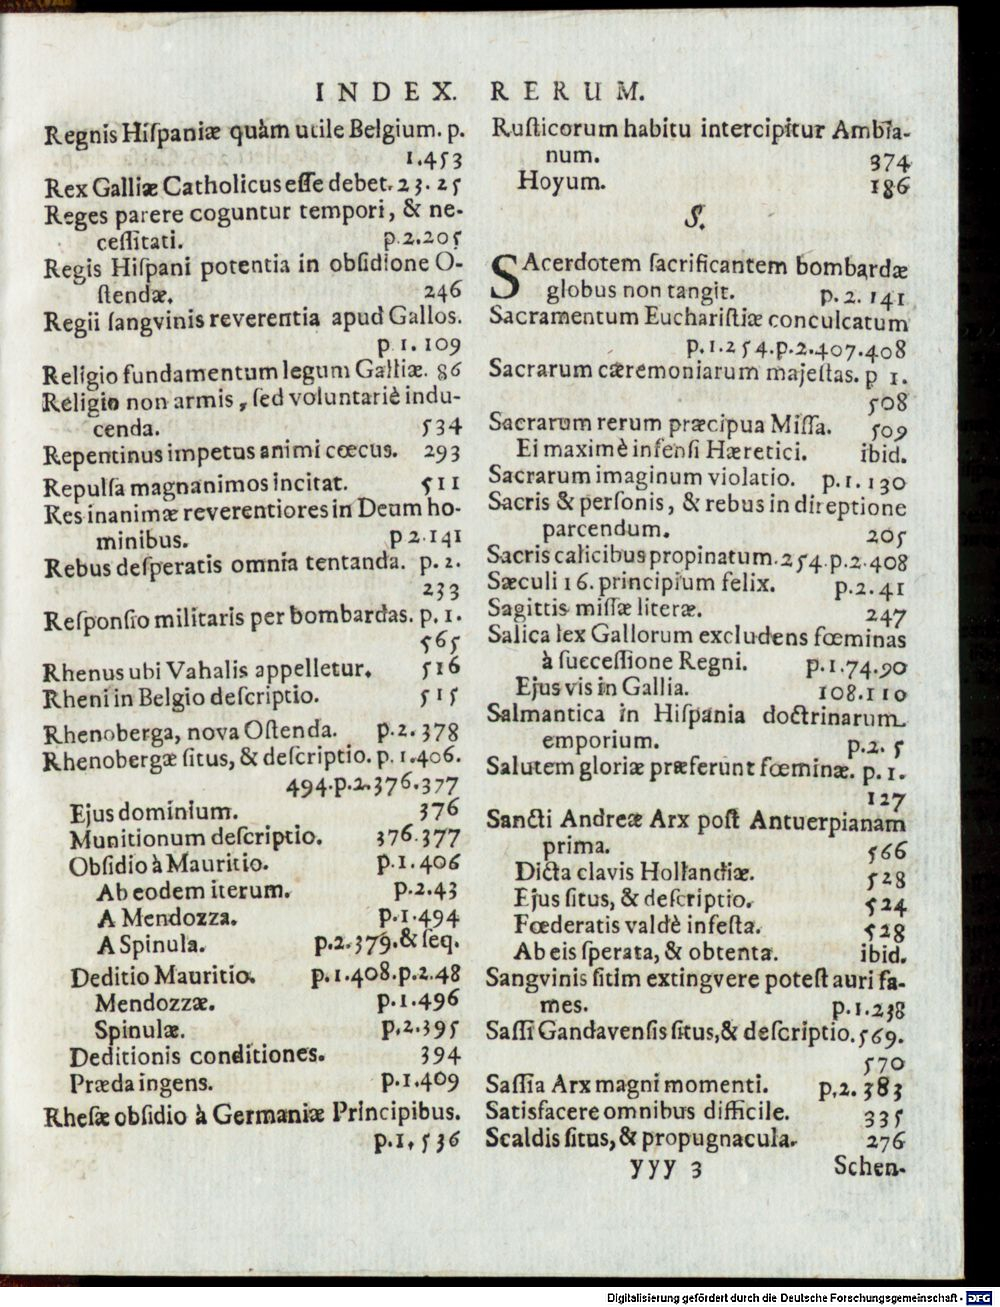 INDEX. RERUM.
Regnis Hiſpaniæ quàm utile Belgium. p.
1.453
Rex Galliæ Catholicus eſſe debet. 23. 25
Reges parere coguntur tempori, & ne-
ceſſitati. p.2.205
Regis Hiſpani potentia in obſidione O-
ſtendæ. 246
Regii ſangvinis reverentia apud Gallos.
p 1. 109
Religio fundamentum legum Galliæ. 86
Religio non armis, ſed voluntariè indu-
cenda. 534
Repentinus impetus animi cœcus. 293
Repulſa magnanimos incitat. 511
Res inanimæ reverentiores in Deum ho-
minibus. p 2.141
Rebus deſperatis omnia tentanda. p. 2.
233
Reſponſio militaris per bombardas. p. 1.
565
Rhenus ubi Vahalis appelletur. 516
Rheni in Belgio deſcriptio. 515
Rhenoberga, nova Oſtenda. p.2.378
Rhenobergæ ſitus, & deſcriptio. p. 1.406.
494.p.2.376.377
Ejus dominium. 376
Munitionum deſcriptio. 376.377
Obſidio à Mauritio. p.1.406
Ab eodem iterum. p.2.43
A Mendozza. p.1.494
A Spinula. p.2.379.& ſeq.
Deditio Mauritio. p.1.408.p.2.48
Mendozzæ. p.1.496
Spinulæ. p.2.395
Deditionis conditiones. 394
Præda ingens. p.1.409
Rheſæ obſidio à Germaniæ Principibus.
p.1. 536
Ruſticorum habitu intercipitur Ambia-
num. 374
Hoyum. 186
S.
SAcerdotem ſacrificantem bombardæ
globus non tangit. p. 2. 141
Sacramentum Euchariſtiæ conculcatum
p.1.254.p.2.407.408
Sacrarum cæremoniarum majeſtas. p 1.
508
Sacrarum rerum præcipua Miſſa. 509
Ei maximè infenſi Hæretici. ibid.
Sacrarum imaginum violatio. p.1.130
Sacris & perſonis, & rebus in direptione
parcendum. 205
Sacris calicibus propinatum. 254.p.2.408
Sæculi 16. principium felix. p.2.41
Sagittis miſſæ literæ. 247
Salica lex Gallorum excludens fœminas
à ſucceſſione Regni. p.1.74.90
Ejus vis in Gallia. 108.110
Salmantica in Hiſpania doctrinarum
emporium. p.2. 5
Salutem gloriæ præferunt fœminæ. p. 1.
127
Sancti Andreæ Arx poſt Antuerpianam
prima. 566
Dicta clavis Hollandiæ. 528
Ejus ſitus, & deſcriptio. 524
Fœderatis valdè infeſta. 528
Ab eis ſperata, & obtenta. ibid.
Sangvinis ſitim extingvere poteſt auri fa-
mes. p.1.238
Saſſi Gandavenſis ſitus,& deſcriptio. 569.
570
Saſſia Arx magni momenti. p.2. 383
Satisfacere omnibus difficile. 335
Scaldis ſitus, & propugnacula. 276
yyy 3 Schen-
Digitalisierung gefördert durch die Deutsche Forschungsgemeinschaft - DFG